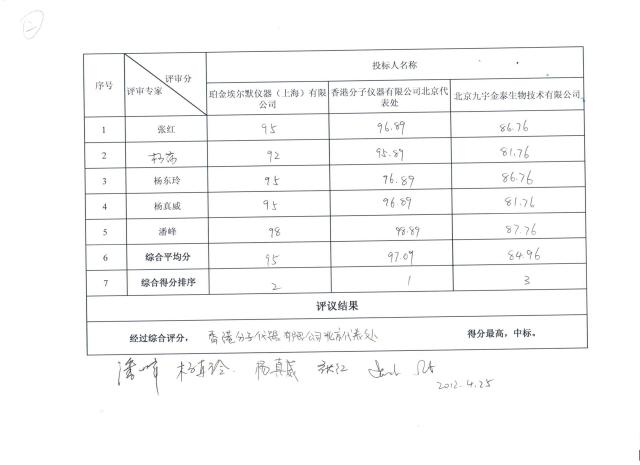 二
序号 评审分 评审专家 投标人名称
珀金埃尔默仪器（上海）有限公司 香港分子仪器有限公司北京代表处 北京九宇金泰生物技术有限公司
1 张红 95 96.89 86.76
2 92 95.89 81.76
3 杨东玲 95 96.89 86.76
4 杨真威 95 96.89 81.76
5 潘峰 98 98.89 87.76
6 综合平均分 95 97.09 84.96
7 综合得分排序 2 1 3
评议结果
经过综合评分， 香港分子仪器有限公司北京代表处 得分最高，中标。
潘峰 杨东玲 杨真威 张红
2012.4.25